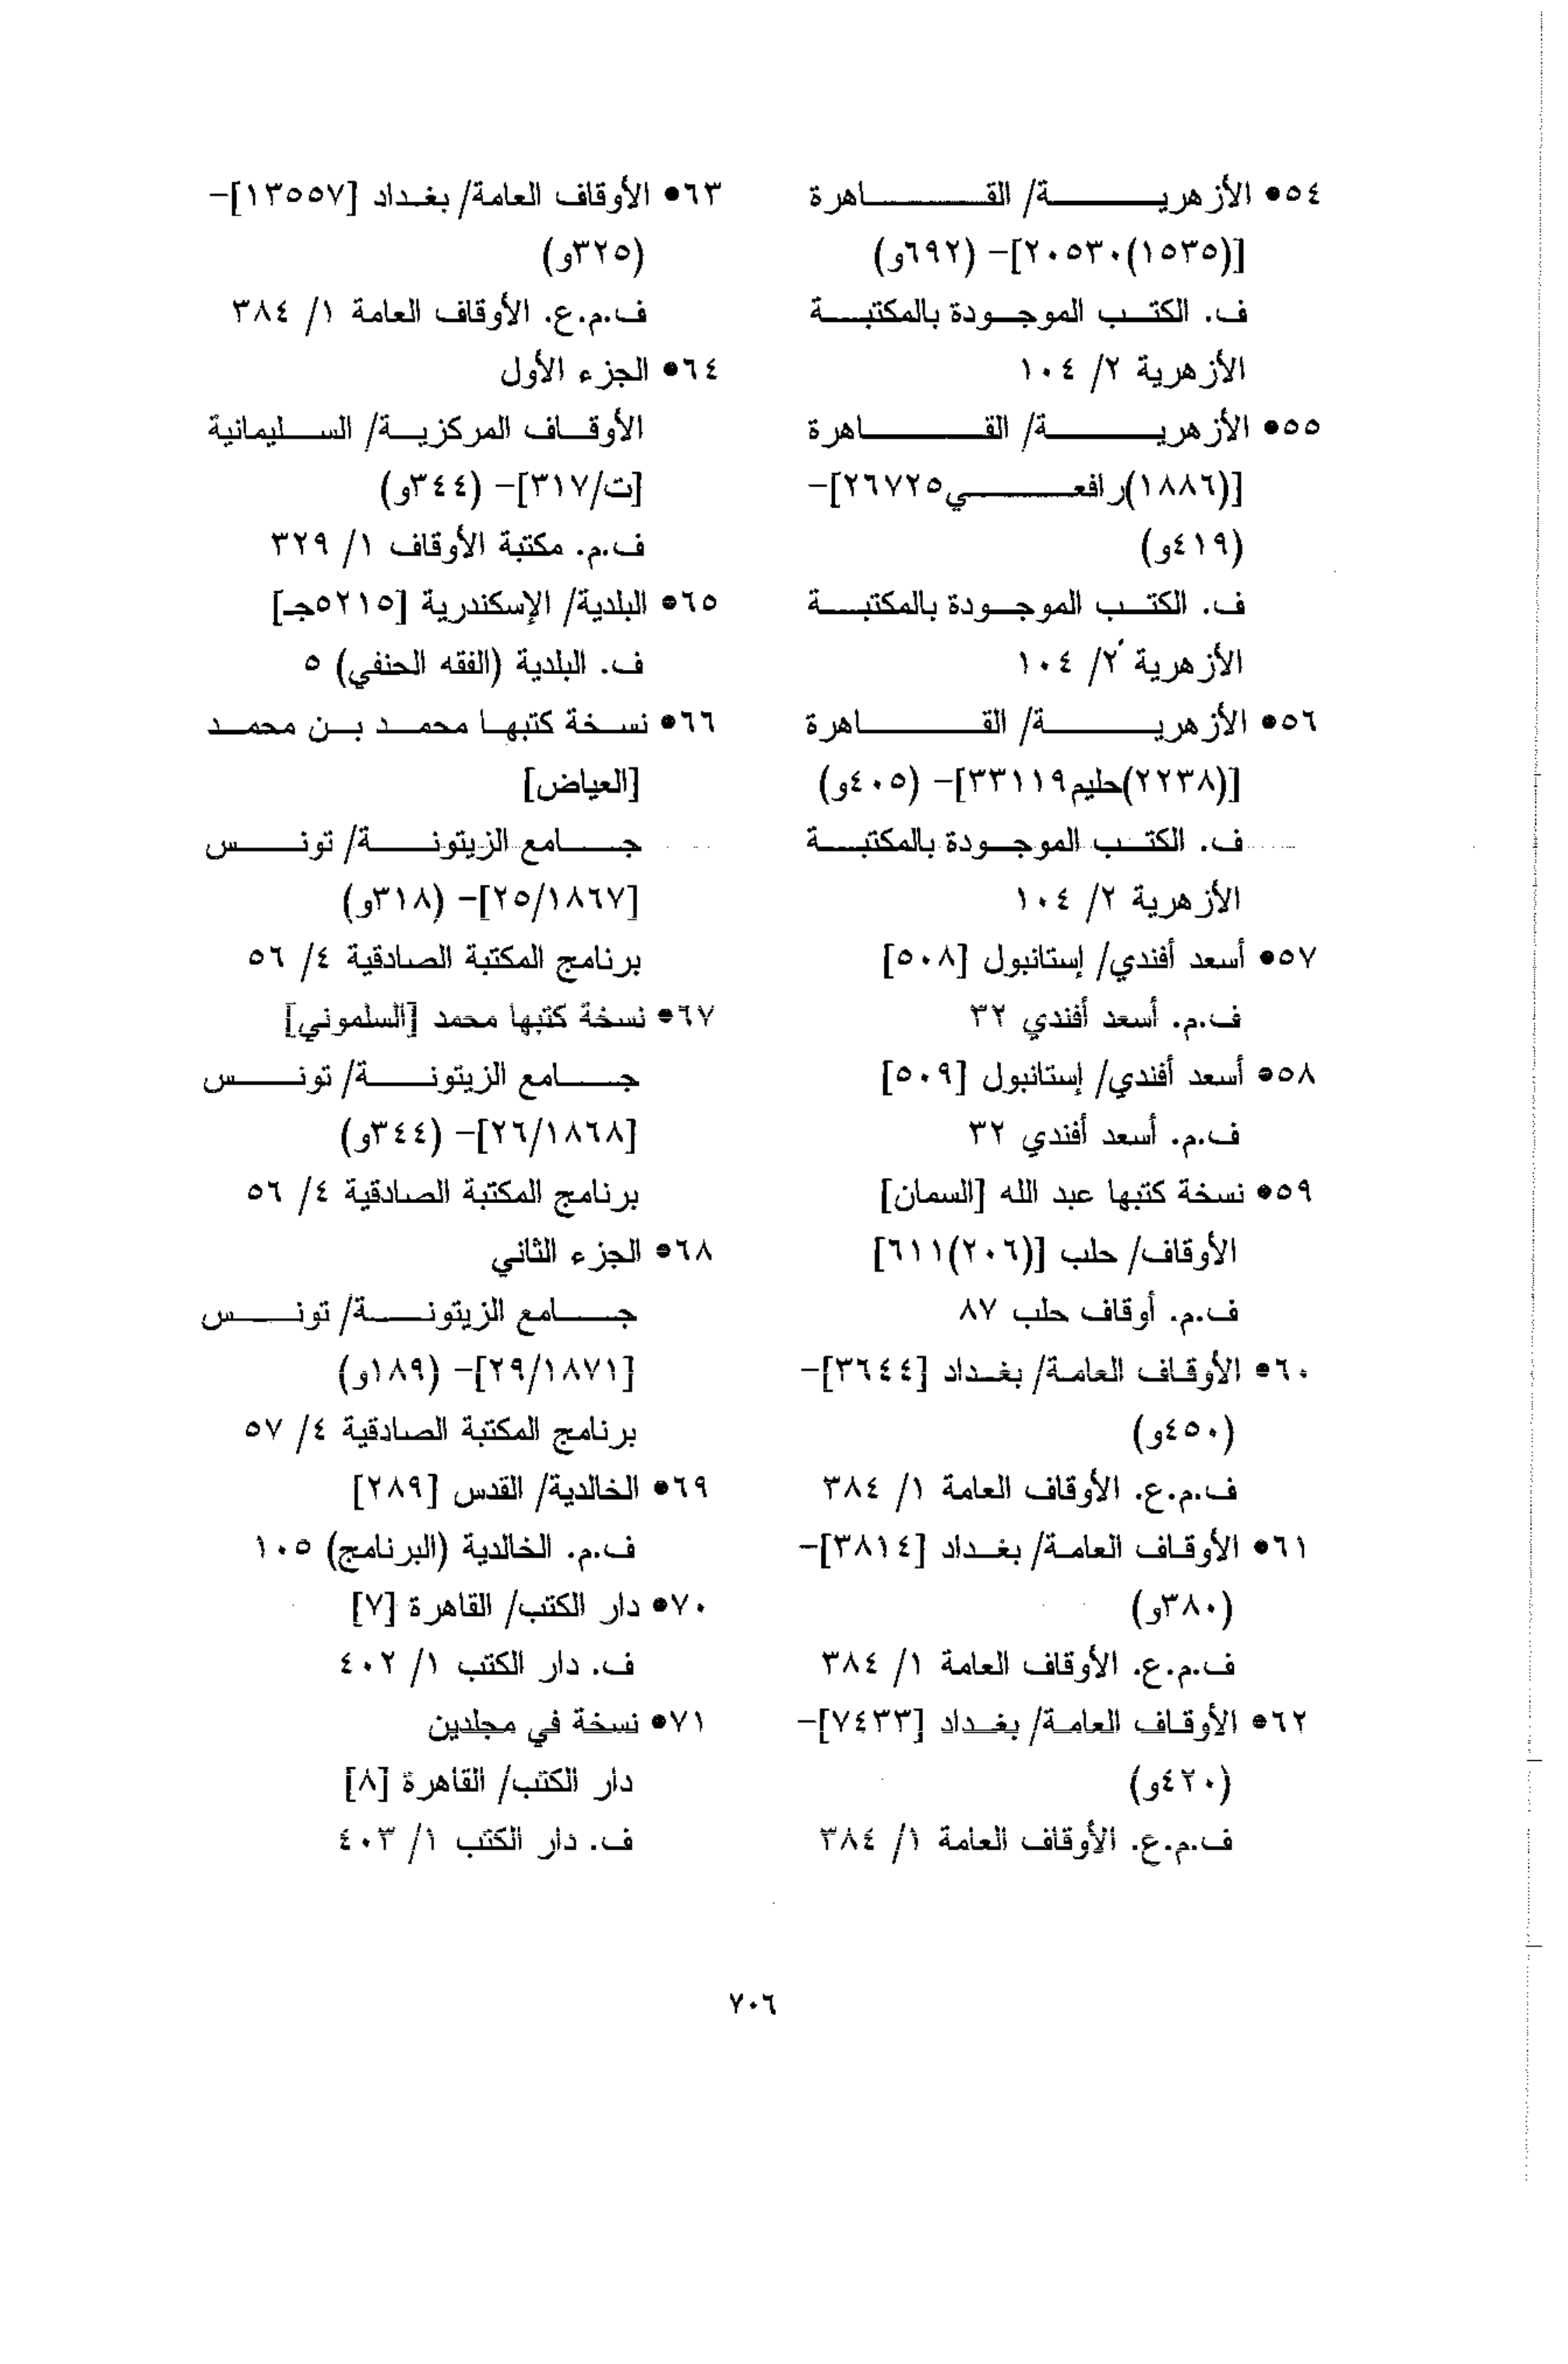 ٥٤• الأزهرية/ القاهرة
[(١٥٣٥)٢٠٥٣٠]- (٦٩٢و)
ف. الكتب الموجودة بالمكتبة
الأزهرية ٢/ ١٠٤
٥٥• الأزهرية/ القاهرة
[(١٨٨٦)رافعي٢٦٧٢٥]-
(٤١٩و)
ف. الكتب الموجودة بالمكتبة
الأزهرية ٢/ ١٠٤
٥٦• الأزهرية/ القاهرة
[(٢٢٣٨)حليم٣٣١١٩]- (٤٠٥و)
ف. الكتب الموجودة بالمكتبة
الأزهرية ٢/ ١٠٤
٥٧• أسعد أفندي/ إستانبول [٥٠٨]
ف.م. أسعد أفندي ٣٢
٥٨• أسعد أفندي/ إستانبول [٥٠٩]
ف.م. أسعد أفندي ٣٢
٥٩• نسخة كتبها عبد الله [السمان]
الأوقاف/ حلب [(٢٠٦)٦١١]
ف.م. أوقاف حلب ٨٧
٦٠• الأوقاف العامة/ بغداد [٣٦٤٤]-
(٤٥٠و)
ف.م.ع. الأوقاف العامة ١/ ٣٨٤
٦١• الأوقاف العامة/ بغداد [٣٨١٤]-
(٣٨٠و)
ف.م.ع. الأوقاف العامة ١/ ٣٨٤
٦٢• الأوقاف العامة/ بغداد [٧٤٣٣]-
(٤٢٠و)
ف.م.ع. الأوقاف العامة ١/ ٣٨٤
٦٣• الأوقاف العامة/ بغداد [١٣٥٥٧]-
(٣٢٥و)
ف.م.ع. الأوقاف العامة ١/ ٣٨٤
٦٤• الجزء الأول
الأوقاف المركزية/ السليمانية
[ت/٣١٧]- (٣٤٤و)
ف.م. مكتبة الأوقاف ١/ ٣٢٩
٦٥• البلدية/ الإسكندرية [٥٢١٥جـ]
ف. البلدية (الفقه الحنفي) ٥
٦٦• نسخة كتبها محمد بن محمد
[العياض]
جامع الزيتونة/ تونس
[٢٥/١٨٦٧]- (٣١٨و)
برنامج المكتبة الصادقية ٤/ ٥٦
٦٧• نسخة كتبها محمد [السلموني]
جامع الزيتونة/ تونس
[٢٦/١٨٦٨]- (٣٤٤و)
برنامج المكتبة الصادقية ٤/ ٥٦
٦٨• الجزء الثاني
جامع الزيتونة/ تونس
[٢٩/١٨٧١]- (١٨٩و)
برنامج المكتبة الصادقية ٤/ ٥٧
٦٩• الخالدية/ القدس [٢٨٩]
ف.م. الخالدية (البرنامج) ١٠٥
٧٠• دار الكتب/ القاهرة [٧]
ف. دار الكتب ١/ ٤٠٢
٧١• نسخة في مجلدين
دار الكتب/ القاهرة [٨]
ف. دار الكتب ١/ ٤٠٣
٧٠٦